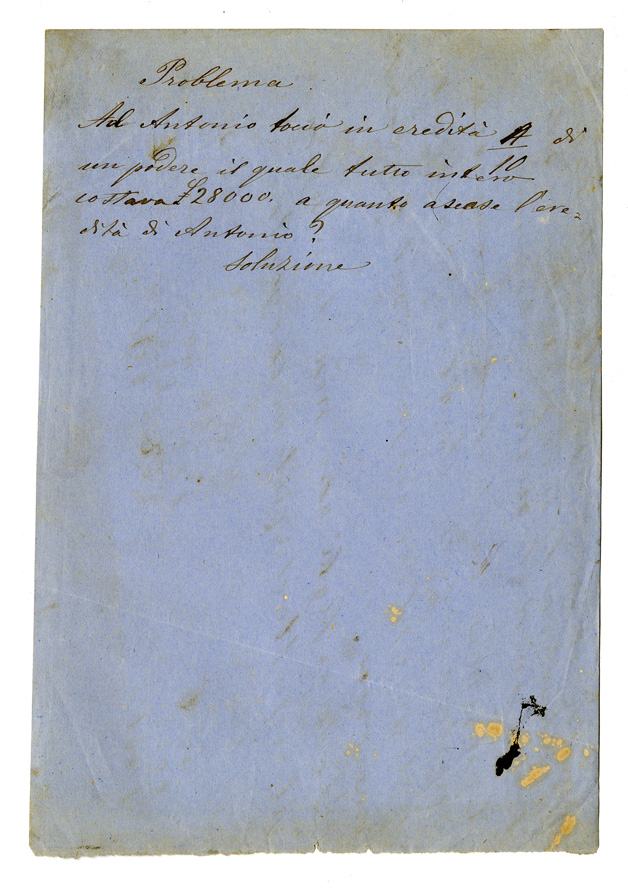 Problema
Ad Antonio toccò in eredità 4/10 di
un podere il quale tutto intero
costava £28000. a quanto ascese l'ere=
dità di Antonio?
Soluzione